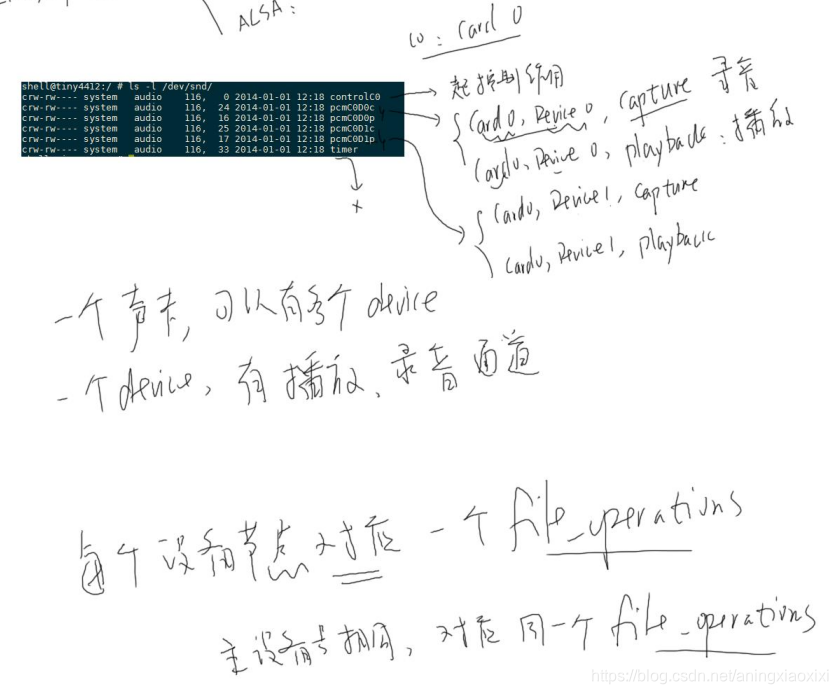 ALSA:
C0: Card 0
shell@tiny4412:/ # ls -l /dev/snd/
crw-rw---- system   audio    116,   0 2014-01-01 12:18 controlC0
crw-rw---- system   audio    116,  24 2014-01-01 12:18 pcmC0D0c
crw-rw---- system   audio    116,  16 2014-01-01 12:18 pcmC0D0p
crw-rw---- system   audio    116,  25 2014-01-01 12:18 pcmC0D1c
crw-rw---- system   audio    116,  17 2014-01-01 12:18 pcmC0D1p
crw-rw---- system   audio    116,  33 2014-01-01 12:18 timer
起控制作用
Card0, Device 0, capture 录音
Card0, Device 0, playback: 播放
Card0, Device1, capture
Card0, Device1, playback
x
一个声卡, 可以有多个 device
一个device, 有播放、录音通道
每个设备节点对应一个 file_operations
主设备号相同, 对应同一个 file_operations
https://blog.csdn.net/aningxiaoxixi